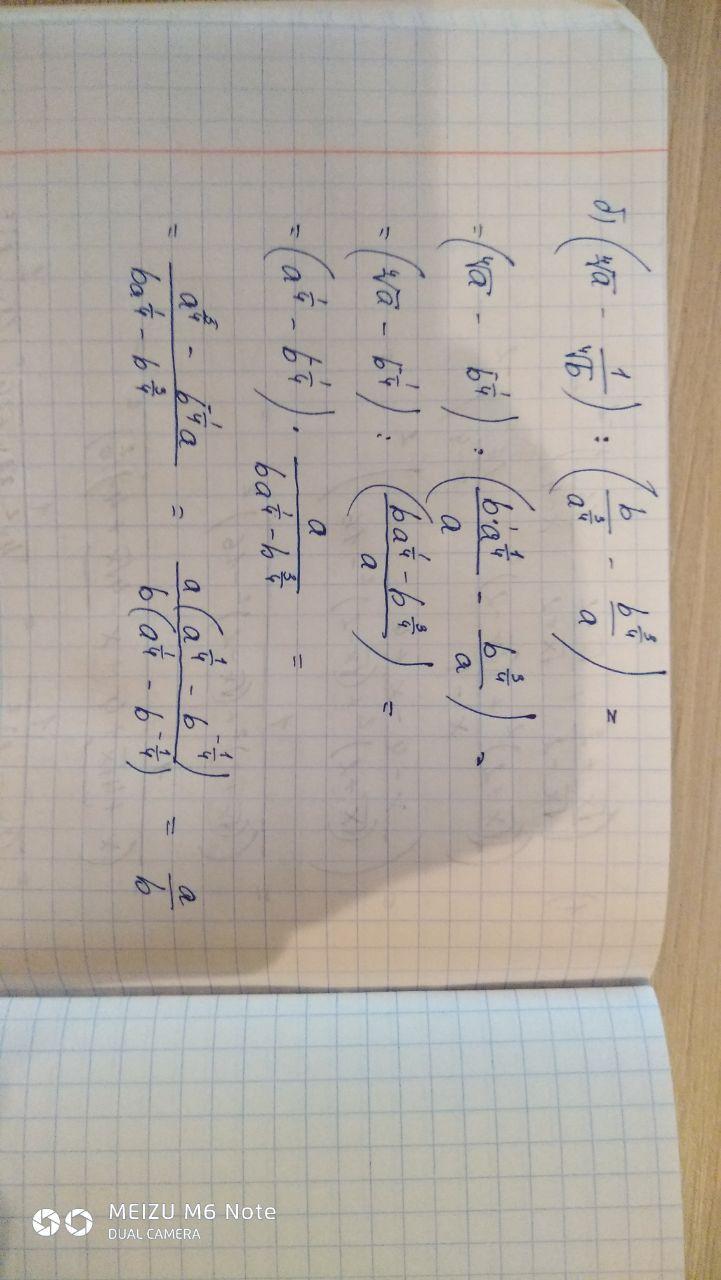 б) (∜a − 1/∜b) : (b/a^(3/4) − b^(3/4)/a) =
= (∜a − b^(-1/4)) : (b·a^(1/4)/a − b^(3/4)/a) =
= (∜a − b^(-1/4)) : ((ba^(1/4) − b^(3/4))/a) =
= (a^(1/4) − b^(-1/4)) · a/(ba^(1/4) − b^(3/4)) =
= (a^(5/4) − b^(-1/4)a)/(ba^(1/4) − b^(3/4)) = a(a^(1/4) − b^(-1/4))/b(a^(1/4) − b^(-1/4)) = a/b
MEIZU M6 Note
DUAL CAMERA